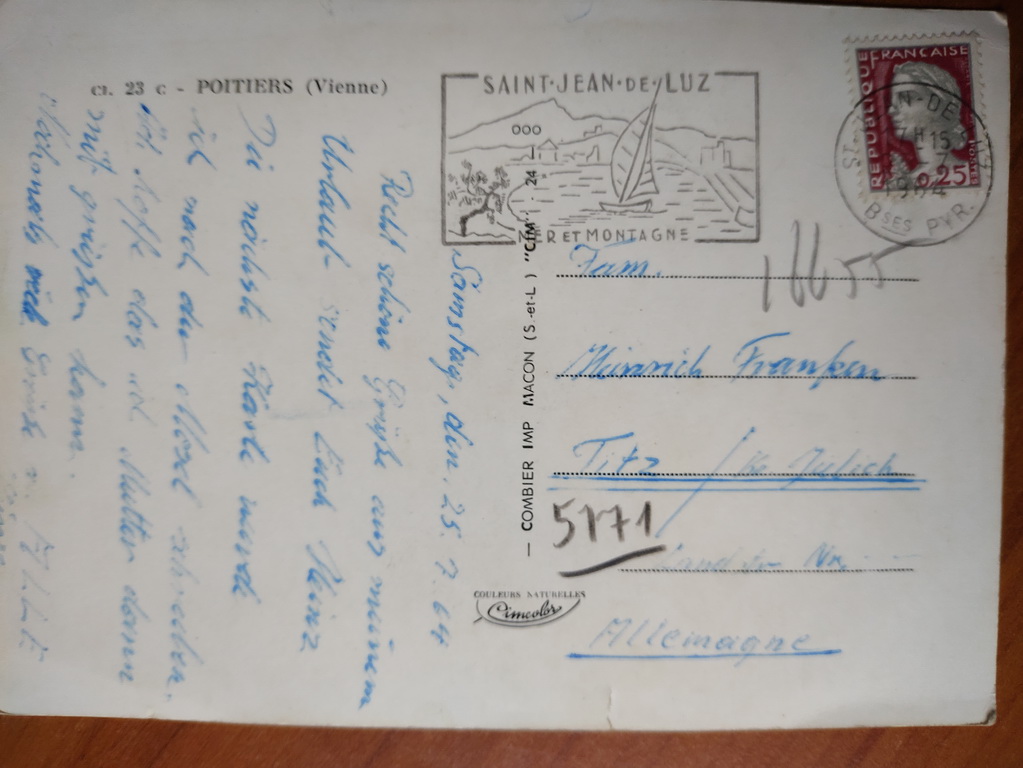 Cl. 23 C - POITIERS (Vienne)
Samstag, den, 25. 7. 64
Recht schöne Grüße aus meinem
Urlaub sendet Euch Heinz
Die nächste Karte werde
ich nach der Mosel schreiben.
Ich hoffe das ich Mutter dann
mit grüßen kann.
Nochmals Grüße
SAINT·JEAN·DE·LUZ
MER ET MONTAGNE
REPUBLIQUE FRANÇAISE
0,25
ST-JEAN-DE-LUZ
17H15
1964
BSES PYR.
— COMBIER IMP MACON (S.-et-L.) "CIM"
24
COULEURS NATURELLES
Cimcolor
Fam.
Heinrich Franken
Titz / Kr Jülich
5171
Land
Allemagne